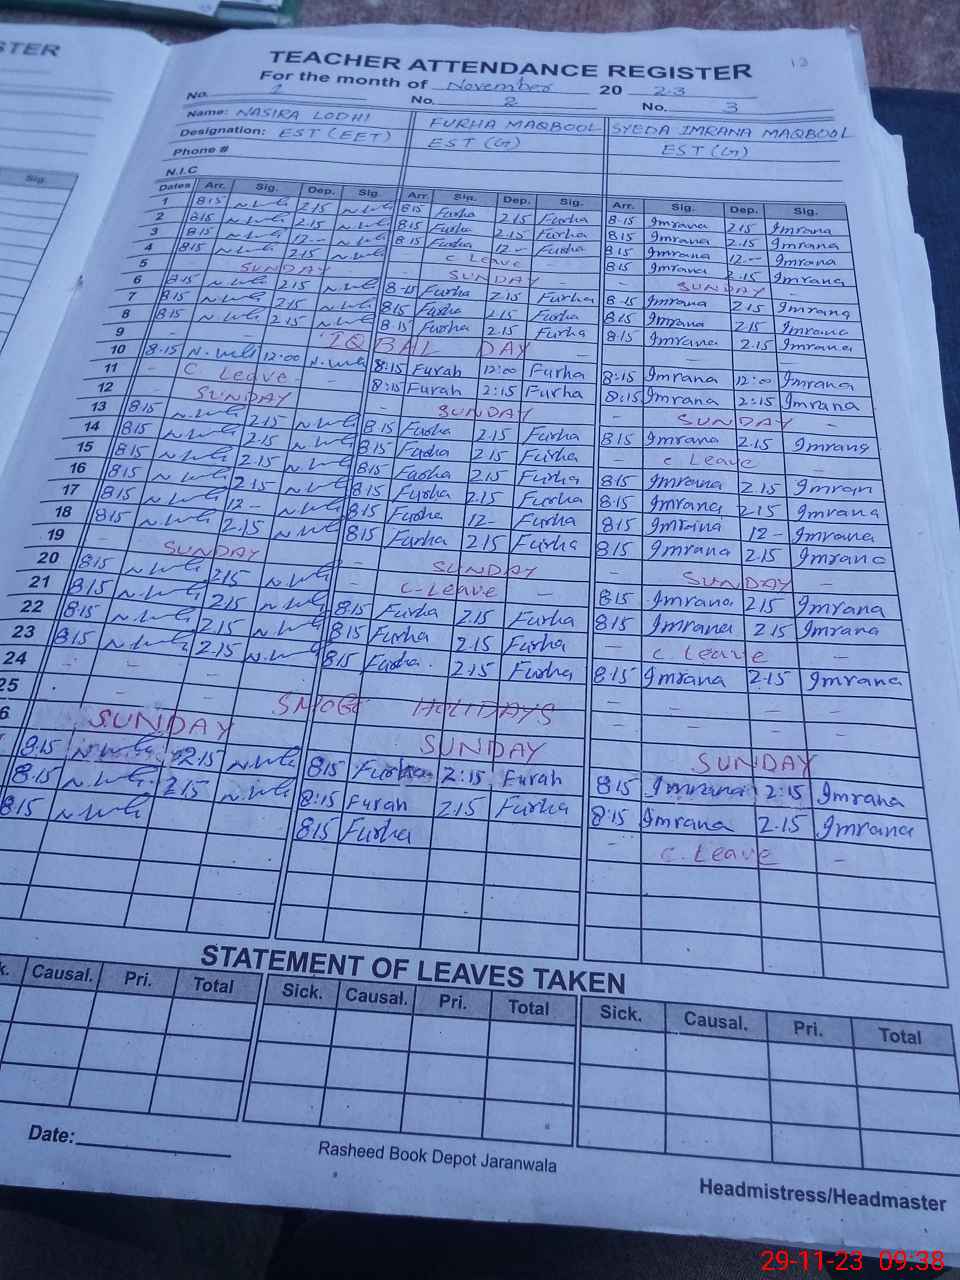 STER
TEACHER ATTENDANCE REGISTER
13
For the month of November 20 23
No. 1 No. 2 No. 3
Name: NASIRA LODHI FURHA MAQBOOL SYEDA IMRANA MAQBOOL
Designation: EST (EET) EST (G) EST (G)
Phone #
N.I.C
Sig.
Dates Arr. Sig. Dep. Sig. Arr. Sig. Dep. Sig. Arr. Sig. Dep. Sig.
1 8:15 2.15 8:15 Furha 2.15 Furha 8.15 Imrana 2.15 Imrana
2 8:15 2.15 8:15 Furha 2.15 Furha 8.15 Imrana 2.15 Imrana
3 8:15 12-- 8:15 Furha 12-- Furha 8.15 Imrana 12-- Imrana
4 8:15 2.15 - C Leave - 8:15 Imrana 2.15 Imrana
5 - SUNDAY - - SUNDAY - - SUNDAY -
6 8:15 2.15 8-15 Furha 2.15 Furha 8-15 Imrana 2.15 Imrana
7 8:15 2.15 8:15 Furha 2.15 Furha 8:15 Imrana 2.15 Imrana
8 8:15 2.15 8:15 Furha 2.15 Furha 8:15 Imrana 2.15 Imrana
9 - - IQBAL DAY - - - - -
10 8.15 12:00 8:15 Furah 12:00 Furha 8:15 Imrana 12:00 Imrana
11 - C Leave - - 8:15 Furah 2:15 Furha 8:15 Imrana 2:15 Imrana
12 SUNDAY - SUNDAY - SUNDAY -
13 8:15 2.15 8:15 Furha 2.15 Furha 8:15 Imrana 2.15 Imrana
14 8:15 2.15 8:15 Furha 2.15 Furha - C Leave -
15 8:15 2.15 8:15 Furha 2.15 Furha 8:15 Imrana 2.15 Imran
16 8:15 2.15 8:15 Furha 2.15 Furha 8:15 Imrana 2.15 Imrana
17 8:15 12- 8:15 Furha 12- Furha 8:15 Imrana 12- Imrana
18 8:15 2.15 8:15 Furha 2.15 Furha 8:15 Imrana 2.15 Imrana
19 - SUNDAY - SUNDAY - SUNDAY -
20 8:15 2.15 - C-Leave - 8:15 Imrana 2.15 Imrana
21 8:15 2.15 8:15 Furha 2.15 Furha 8:15 Imrana 2.15 Imrana
22 8:15 2.15 8:15 Furha 2.15 Furha - C. Leave -
23 8:15 2.15 8:15 Furha 2.15 Furha 8:15 Imrana 2.15 Imrana
24 - - - - - - -
25 - - SMOGE HOLIDAYS - - - -
6 SUNDAY SUNDAY SUNDAY
8:15 2.15 8:15 Furha 2:15 Furah 8:15 Imrana 2:15 Imrana
8:15 2.15 8:15 Furah 2.15 Furha 8:15 Imrana 2.15 Imrana
8:15 8:15 Furha - C. Leave -
STATEMENT OF LEAVES TAKEN
k. Causal. Pri. Total Sick. Causal. Pri. Total Sick. Causal. Pri. Total
Date:
Rasheed Book Depot Jaranwala
Headmistress/Headmaster
29-11-23 09:38